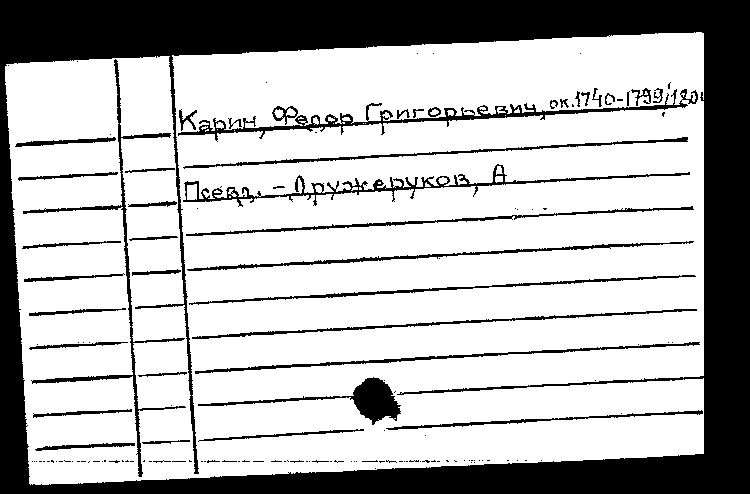 Карин, Федор Григорьевич, ок.1740-1799/180
Псевд. - Дружеруков, А